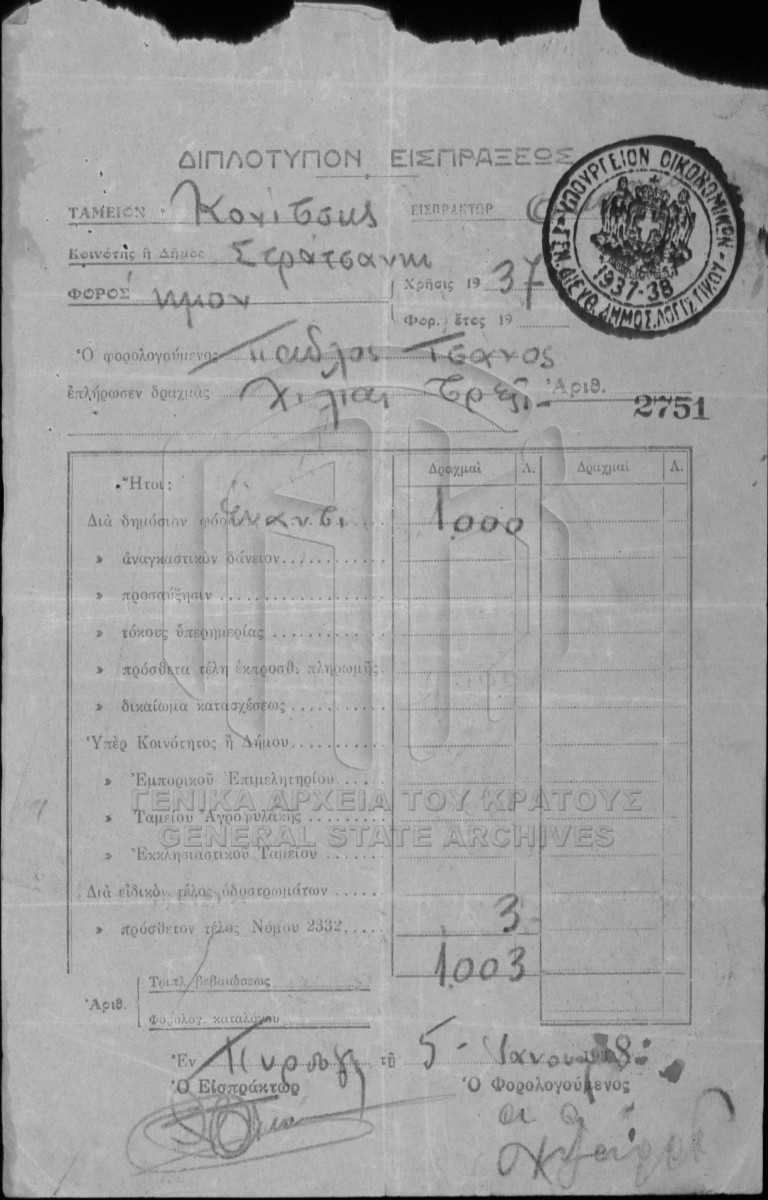 ΔΙΠΛΟΤΥΠΟΝ ΕΙΣΠΡΑΞΕΩΣ
ΥΠΟΥΡΓΕΙΟΝ ΟΙΚΟΝΟΜΙΚΩΝ
1937-38
ΓΕΝ. ΔΙΕΥΘ. ΔΗΜΟΣ. ΛΟΓΙΣΤΙΚΟΥ
ΤΑΜΕΙΟΝ Κονίτσης ΕΙΣΠΡΑΚΤΩΡ
Κοινότης ἢ Δῆμος Στράτσανη
ΦΟΡΟΣ Χρῆσις 1937
Φορ. ἔτος 19
Ὁ φορολογούμενος Παῦλος Τσάνος
ἐπλήρωσεν δραχμὰς Χίλιαι τρεῖς Ἀριθ. 2751
Ἤτοι: Δραχμαὶ Λ. Δραχμαὶ Λ.
Διὰ δημόσιον 1000
» ἀναγκαστικὸν δάνειον
» προσαύξησιν
» τόκους ὑπερημερίας
» πρόσθετα τέλη ἐκπροσθ. πληρωμῆς
» δικαίωμα κατασχέσεως
Ὑπὲρ Κοινότητος ἢ Δήμου
» Ἐμπορικοῦ Ἐπιμελητηρίου
ΓΕΝΙΚΑ ΑΡΧΕΙΑ ΤΟΥ ΚΡΑΤΟΥΣ
» Ταμείου Ἀγροφυλακῆς
GENERAL STATE ARCHIVES
» Ἐκκλησιαστικοῦ Ταμείου
Διὰ εἰδικὸν τέλος ὁδοστρωμάτων
» πρόσθετον τέλος Νόμου 2332 3
1.003
Ἀριθ. Τριπλ. βεβαιώσεως
Φορολογ. καταλόγου
Ἐν τῇ 5 Ἰανουαρ 1938
Ὁ Εἰσπράκτωρ Ὁ Φορολογούμενος